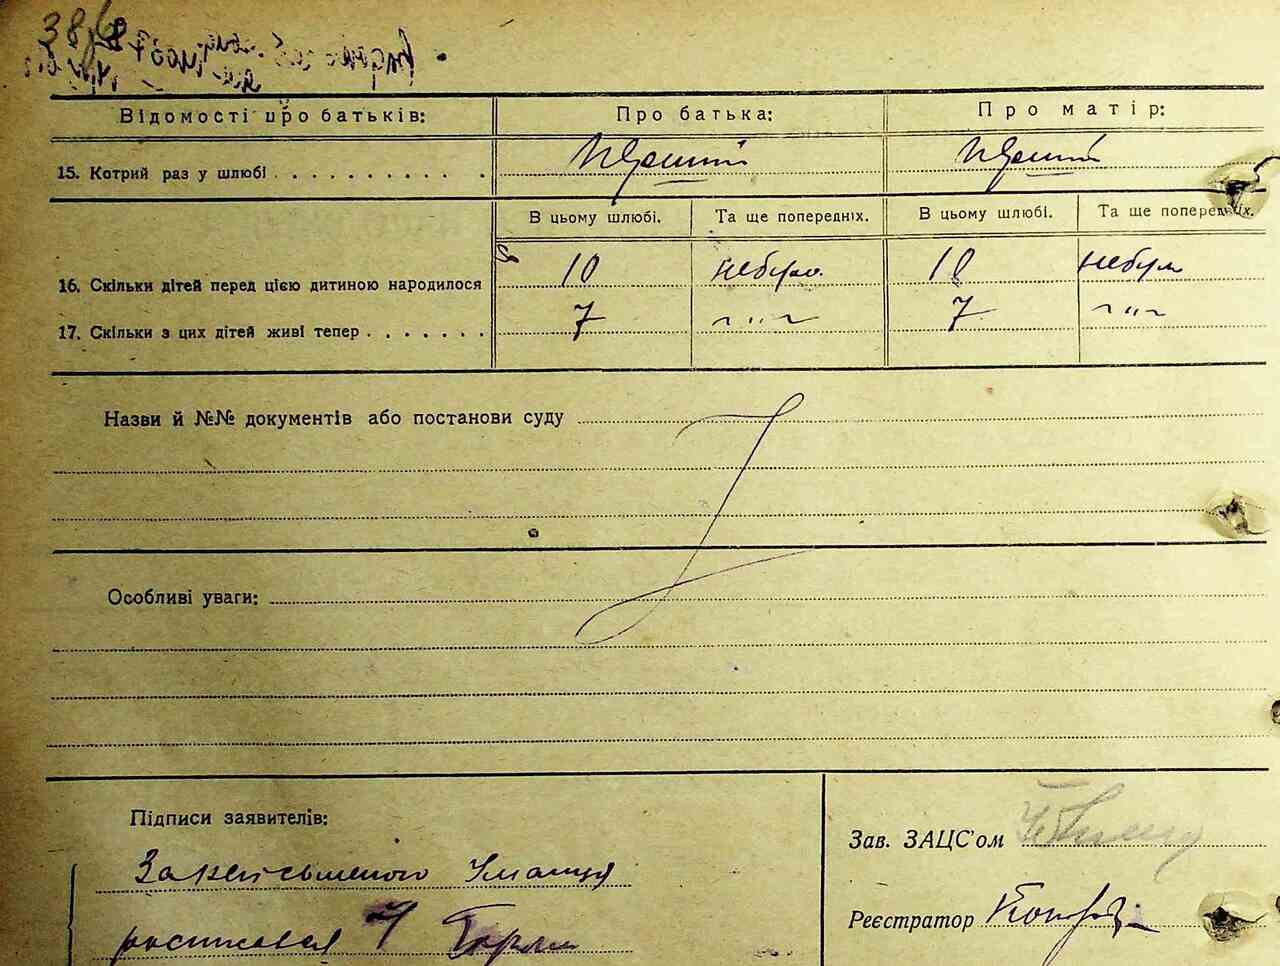 38
Відомості про батьків: Про батька: Про матір:
15. Котрий раз у шлюбі . . . . . . . . . .
В цьому шлюбі. Та ще попередніх. В цьому шлюбі. Та ще попередніх.
16. Скільки дітей перед цією дитиною народилося 10 небуло 10 небуло
17. Скільки з цих дітей живі тепер . . . . . . . 7 ~ " ~ 7 ~ " ~
Назви й №№ документів або постанови суду
Особливі уваги:
Підписи заявителів:
Зав. ЗАЦС'ом
За неписьменого Уманця
Реєстратор
росписався